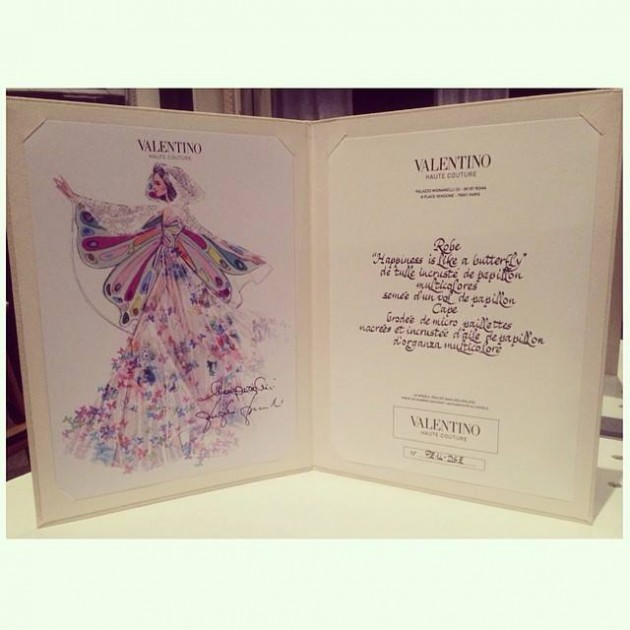 VALENTINO
HAUTE COUTURE
VALENTINO
HAUTE COUTURE
PALAZZO MIGNANELLI 22 - 00187 ROMA
8 PLACE VENDOME - 75001 PARIS
Robe
"Happiness is like a butterfly"
de tulle incruste de papillon
multicolores
semée d'un vol de papillon
Cape
brodée de micro paillettes
nacrées et incrustée d'aile de papillon
d'organza multicolore
VALENTINO
HAUTE COUTURE
N°